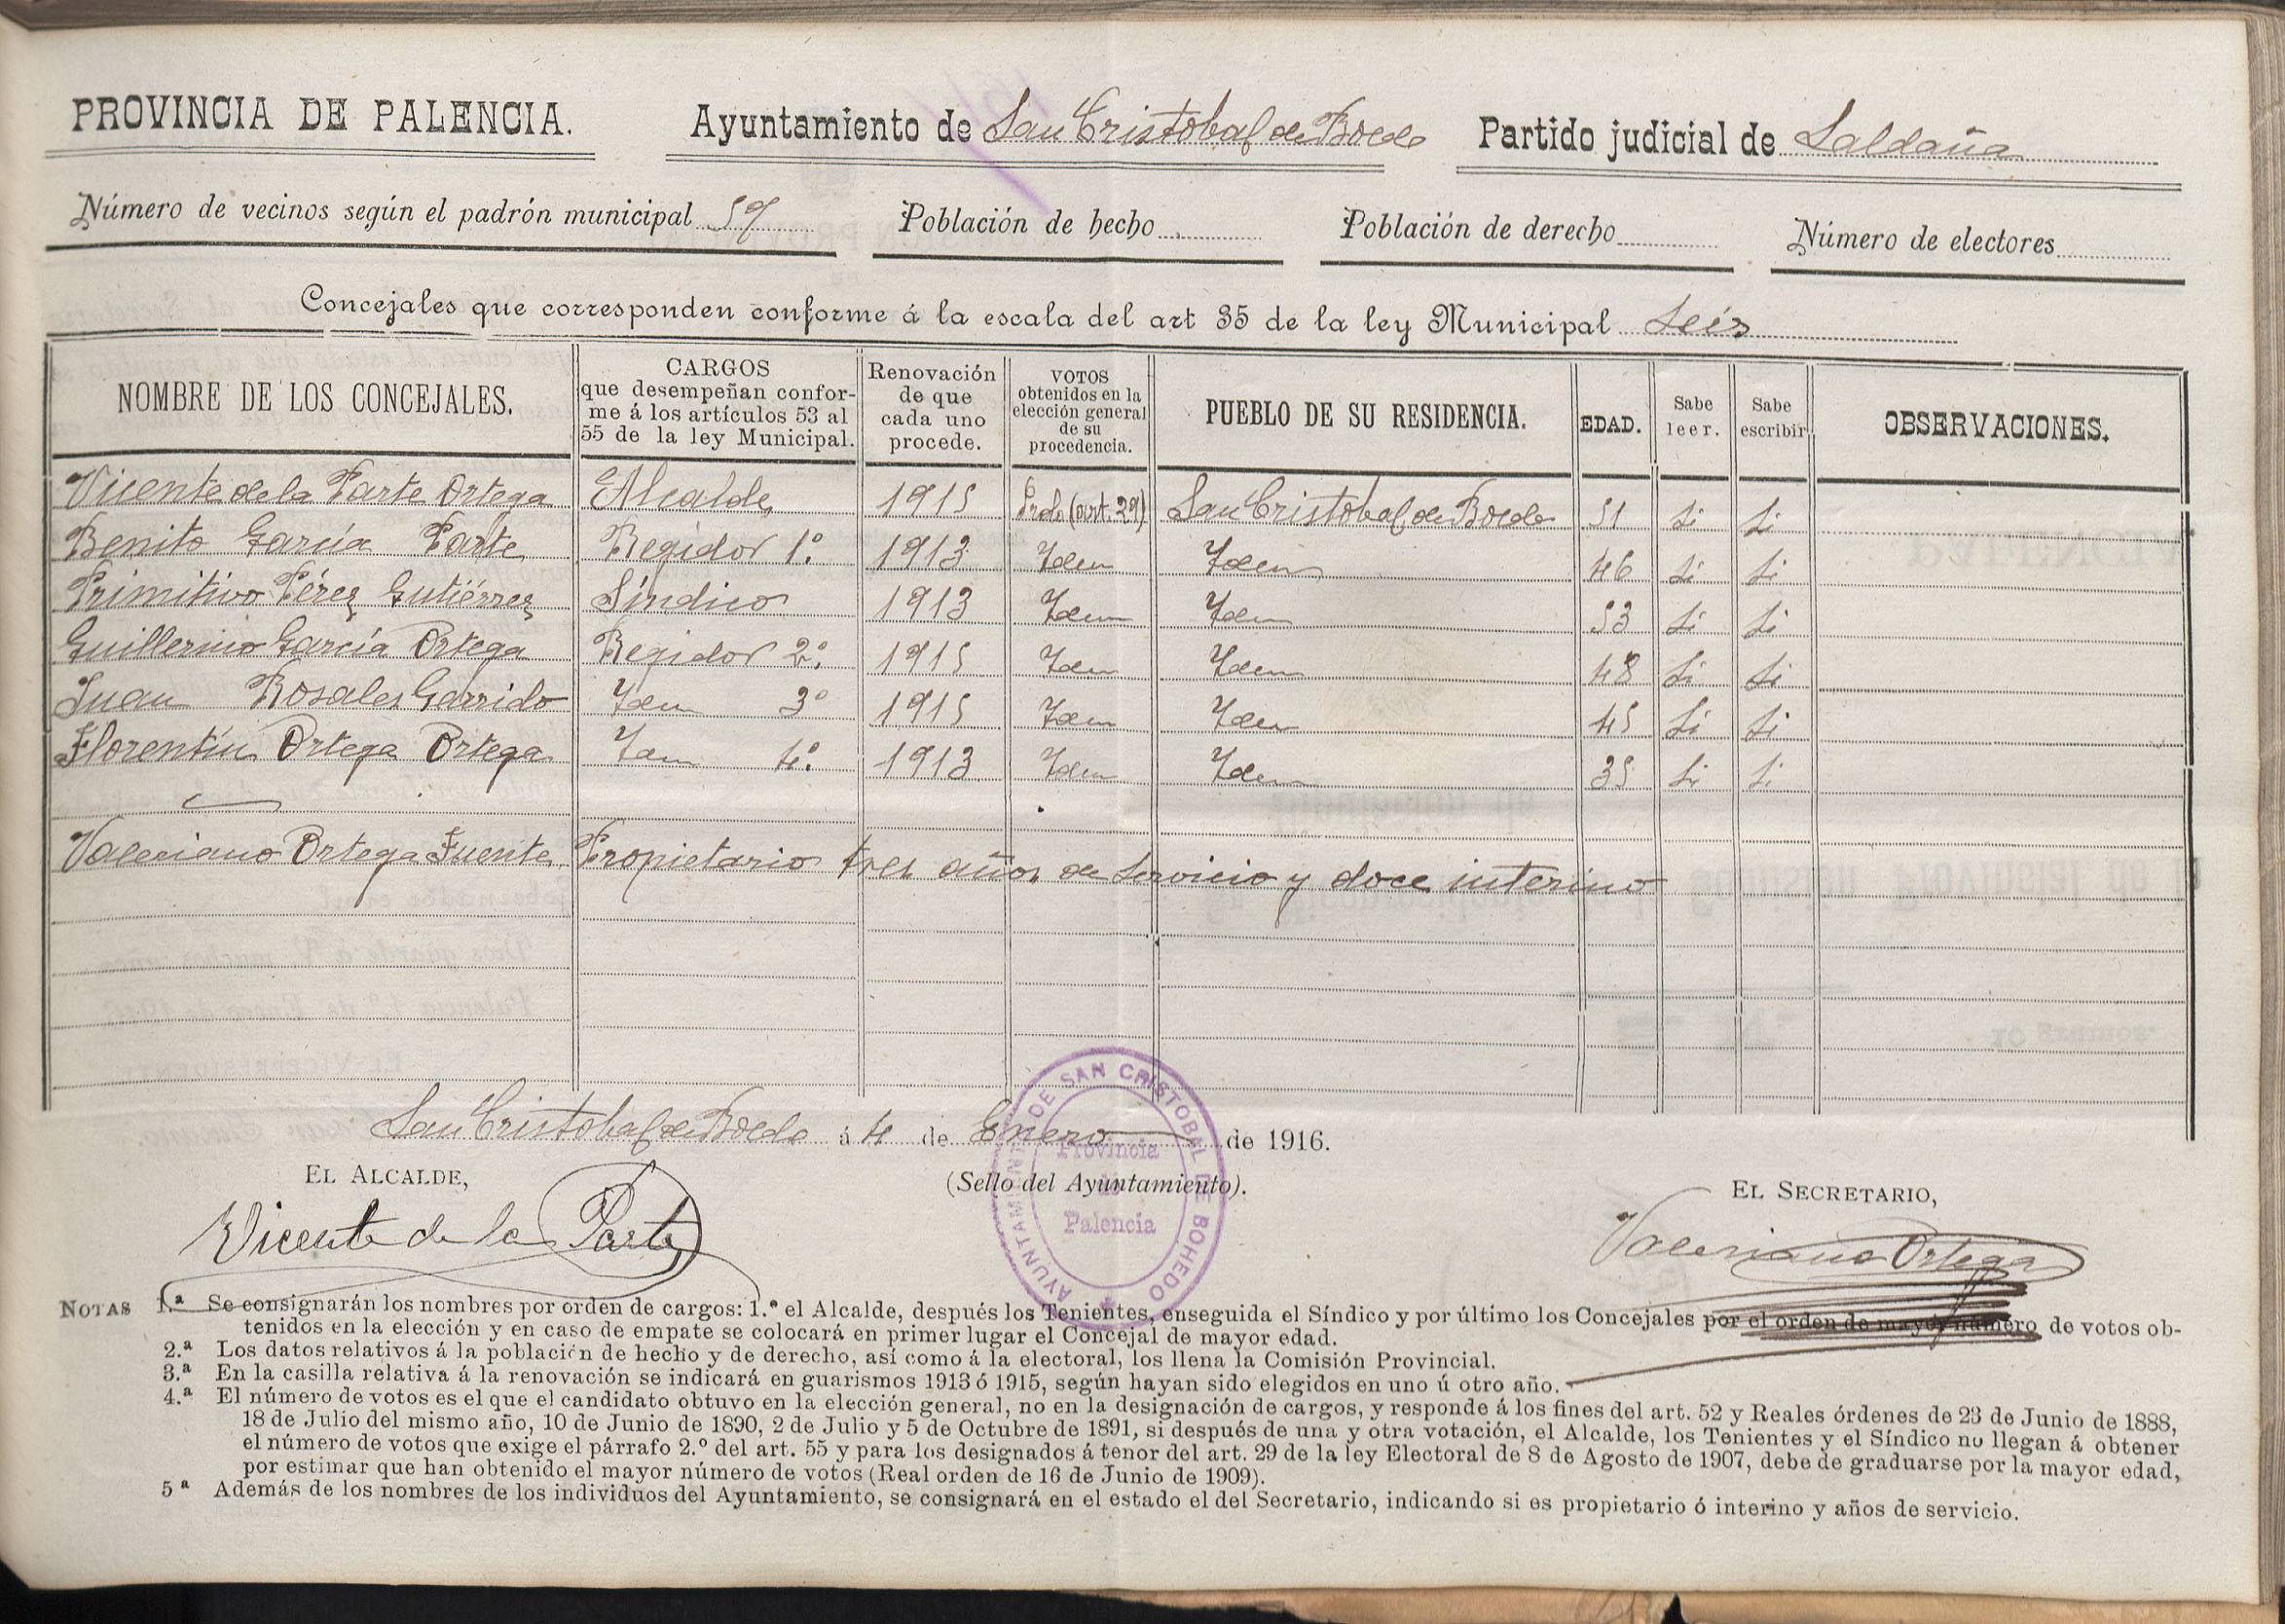 PROVINCIA DE PALENCIA. Ayuntamiento de San Cristobal de Boedo Partido judicial de Saldaña
Número de vecinos según el padrón municipal 59 Población de hecho Población de derecho Número de electores
Concejales que corresponden conforme á la escala del art 35 de la ley Municipal Seis
NOMBRE DE LOS CONCEJALES. CARGOS que desempeñan conforme á los artículos 53 al 55 de la ley Municipal. Renovación de que cada uno procede. VOTOS obtenidos en la elección general de su procedencia. PUEBLO DE SU RESIDENCIA. EDAD. Sabe leer. Sabe escribir OBSERVACIONES.
Vicente de la Parte Ortega Alcalde 1915 (art. 29) San Cristobal de Boedo 51 Si Si
Benito García Parte Regidor 1.º 1913 Idem Idem 46 Si Si
Primitivo Pérez Gutiérrez Síndico 1913 Idem Idem 53 Si Si
Guillermo García Ortega Regidor 2.º 1915 Idem Idem 48 Si Si
Juan Rosales Garrido Idem 3º 1915 Idem Idem 45 Si Si
Florentín Ortega Ortega Idem 4.º 1913 Idem Idem 35 Si Si
Valeriano Ortega Fuente Propietario tres años de servicio y doce interino
San Cristobal de Boedo á 4 de Enero de 1916.
AYUNTAMIENTO DE SAN CRISTOBAL DE BOHEDO
Provincia
de
Palencia
EL ALCALDE,
(Sello del Ayuntamiento).
EL SECRETARIO,
Vicente de la Parte
Valeriano Ortega
NOTAS 1.ª Se consignarán los nombres por orden de cargos: 1.º el Alcalde, después los Tenientes, enseguida el Síndico y por último los Concejales por el orden de mayor número de votos ob-
tenidos en la elección y en caso de empate se colocará en primer lugar el Concejal de mayor edad.
2.ª Los datos relativos á la población de hecho y de derecho, así como á la electoral, los llena la Comisión Provincial.
3.ª En la casilla relativa á la renovación se indicará en guarismos 1913 ó 1915, según hayan sido elegidos en uno ú otro año.
4.ª El número de votos es el que el candidato obtuvo en la elección general, no en la designación de cargos, y responde á los fines del art. 52 y Reales órdenes de 23 de Junio de 1888,
18 de Julio del mismo año, 10 de Junio de 1890, 2 de Julio y 5 de Octubre de 1891, si después de una y otra votación, el Alcalde, los Tenientes y el Síndico no llegan á obtener
el número de votos que exige el párrafo 2.º del art. 55 y para los designados á tenor del art. 29 de la ley Electoral de 8 de Agosto de 1907, debe de graduarse por la mayor edad,
por estimar que han obtenido el mayor número de votos (Real orden de 16 de Junio de 1909).
5ª Además de los nombres de los individuos del Ayuntamiento, se consignará en el estado el del Secretario, indicando si es propietario ó interino y años de servicio.